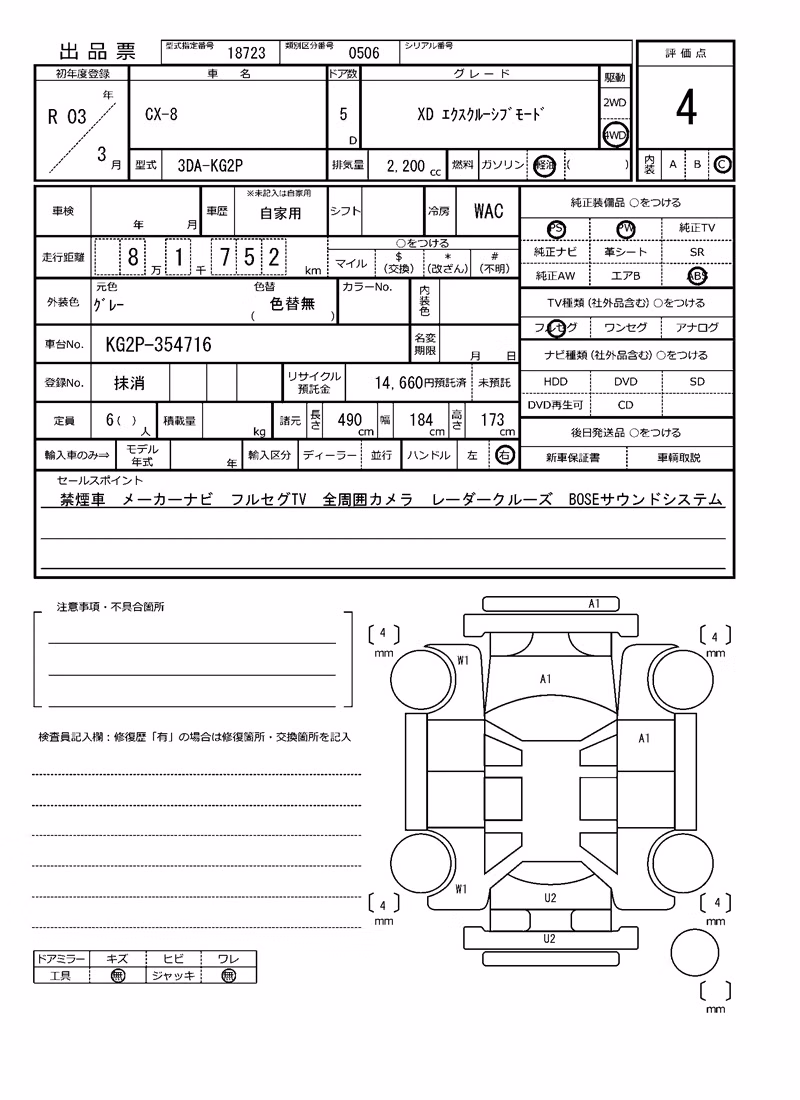 出品票 型式指定番号 18723 類別区分番号 0506 シリアル番号
評価点
4
内装 A B C
初年度登録 車名 ドア数 グレード 駆動
R 03 年 3 月 CX-8 5 D XD エクスクルーシブモード 2WD 4WD
型式 3DA-KG2P 排気量 2,200 cc 燃料 ガソリン 軽油 ( )
車検 年 月 車歴 ※未記入は自家用 自家用 シフト 冷房 WAC
走行距離 8 万 1 千 7 5 2 km ○をつける
マイル $ (交換) * (改ざん) # (不明)
外装色 元色 グレー 色替 色替無 ( ) カラーNo. 内装色
車台No. KG2P-354716 名変期限 月 日
登録No. 抹消 リサイクル預託金 14,660円預託済 未預託
定員 6( ) 人 積載量 kg 諸元 長さ 490 cm 幅 184 cm 高さ 173 cm
輸入車のみ⇒ モデル年式 年 輸入区分 ディーラー 並行 ハンドル 左 右
純正装備品 ○をつける
PS PW 純正TV
純正ナビ 革シート SR
純正AW エアB ABS
TV種類(社外品含む)○をつける
フルセグ ワンセグ アナログ
ナビ種類(社外品含む)○をつける
HDD DVD SD
DVD再生可 CD
後日発送品 ○をつける
新車保証書 車輌取説
セールスポイント
禁煙車 メーカーナビ フルセグTV 全周囲カメラ レーダークルーズ BOSEサウンドシステム
注意事項・不具合箇所
検査員記入欄:修復歴「有」の場合は修復箇所・交換箇所を記入
A1
[4] mm [4] mm
W1
A1
A1
W1
U2
[4] mm [4] mm
U2
[ ] mm
ドアミラー キズ ヒビ ワレ
工具 無 ジャッキ 無